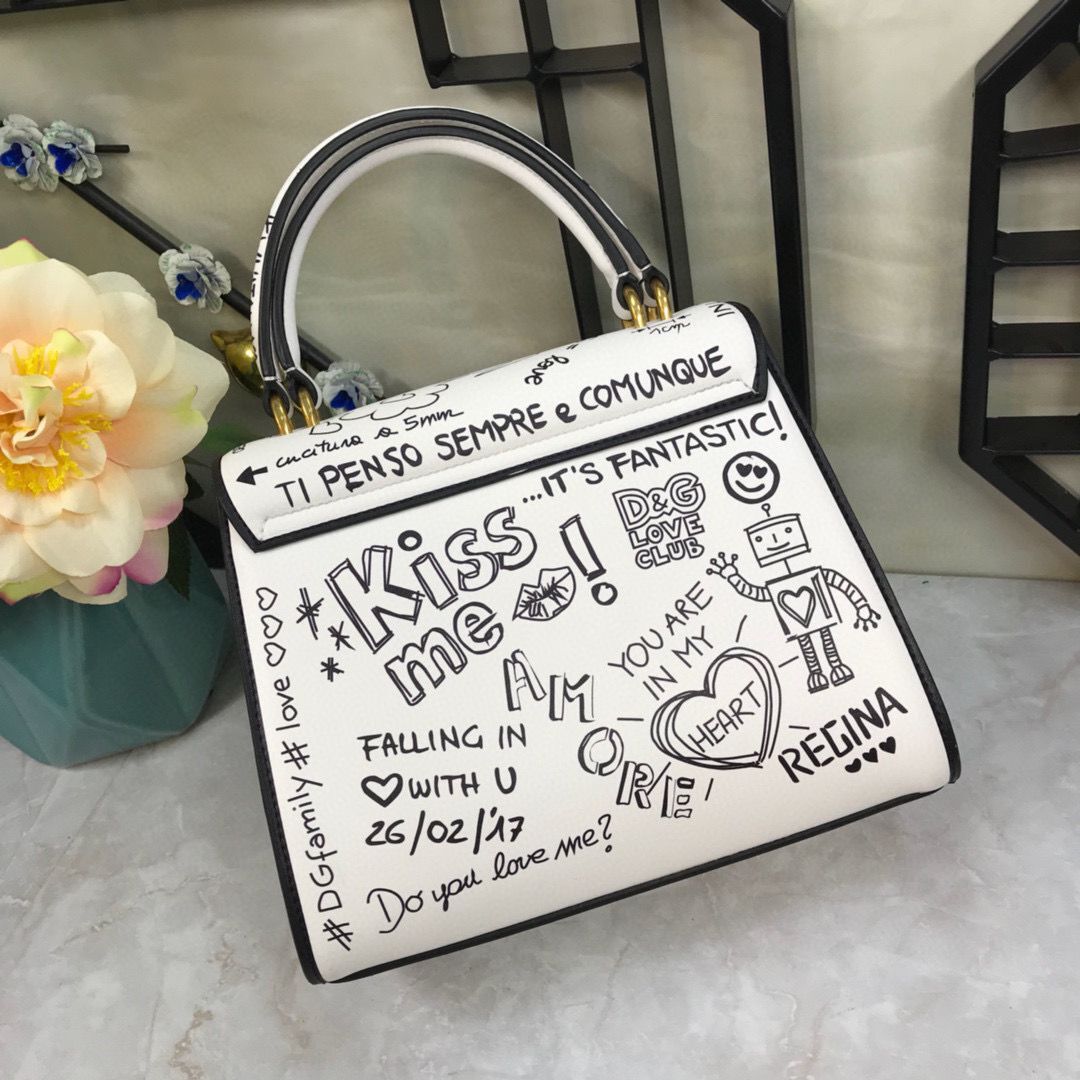 love
1cm
cucitura a 5mm
TI PENSO SEMPRE e COMUNQUE
...IT'S FANTASTIC!
D&G
LOVE
CLUB
Kiss
me!
AMORE
YOU ARE
IN MY
HEART
RÈGINA
FALLING IN
WITH U
26/02/'17
Do you love me?
#DGfamily#love